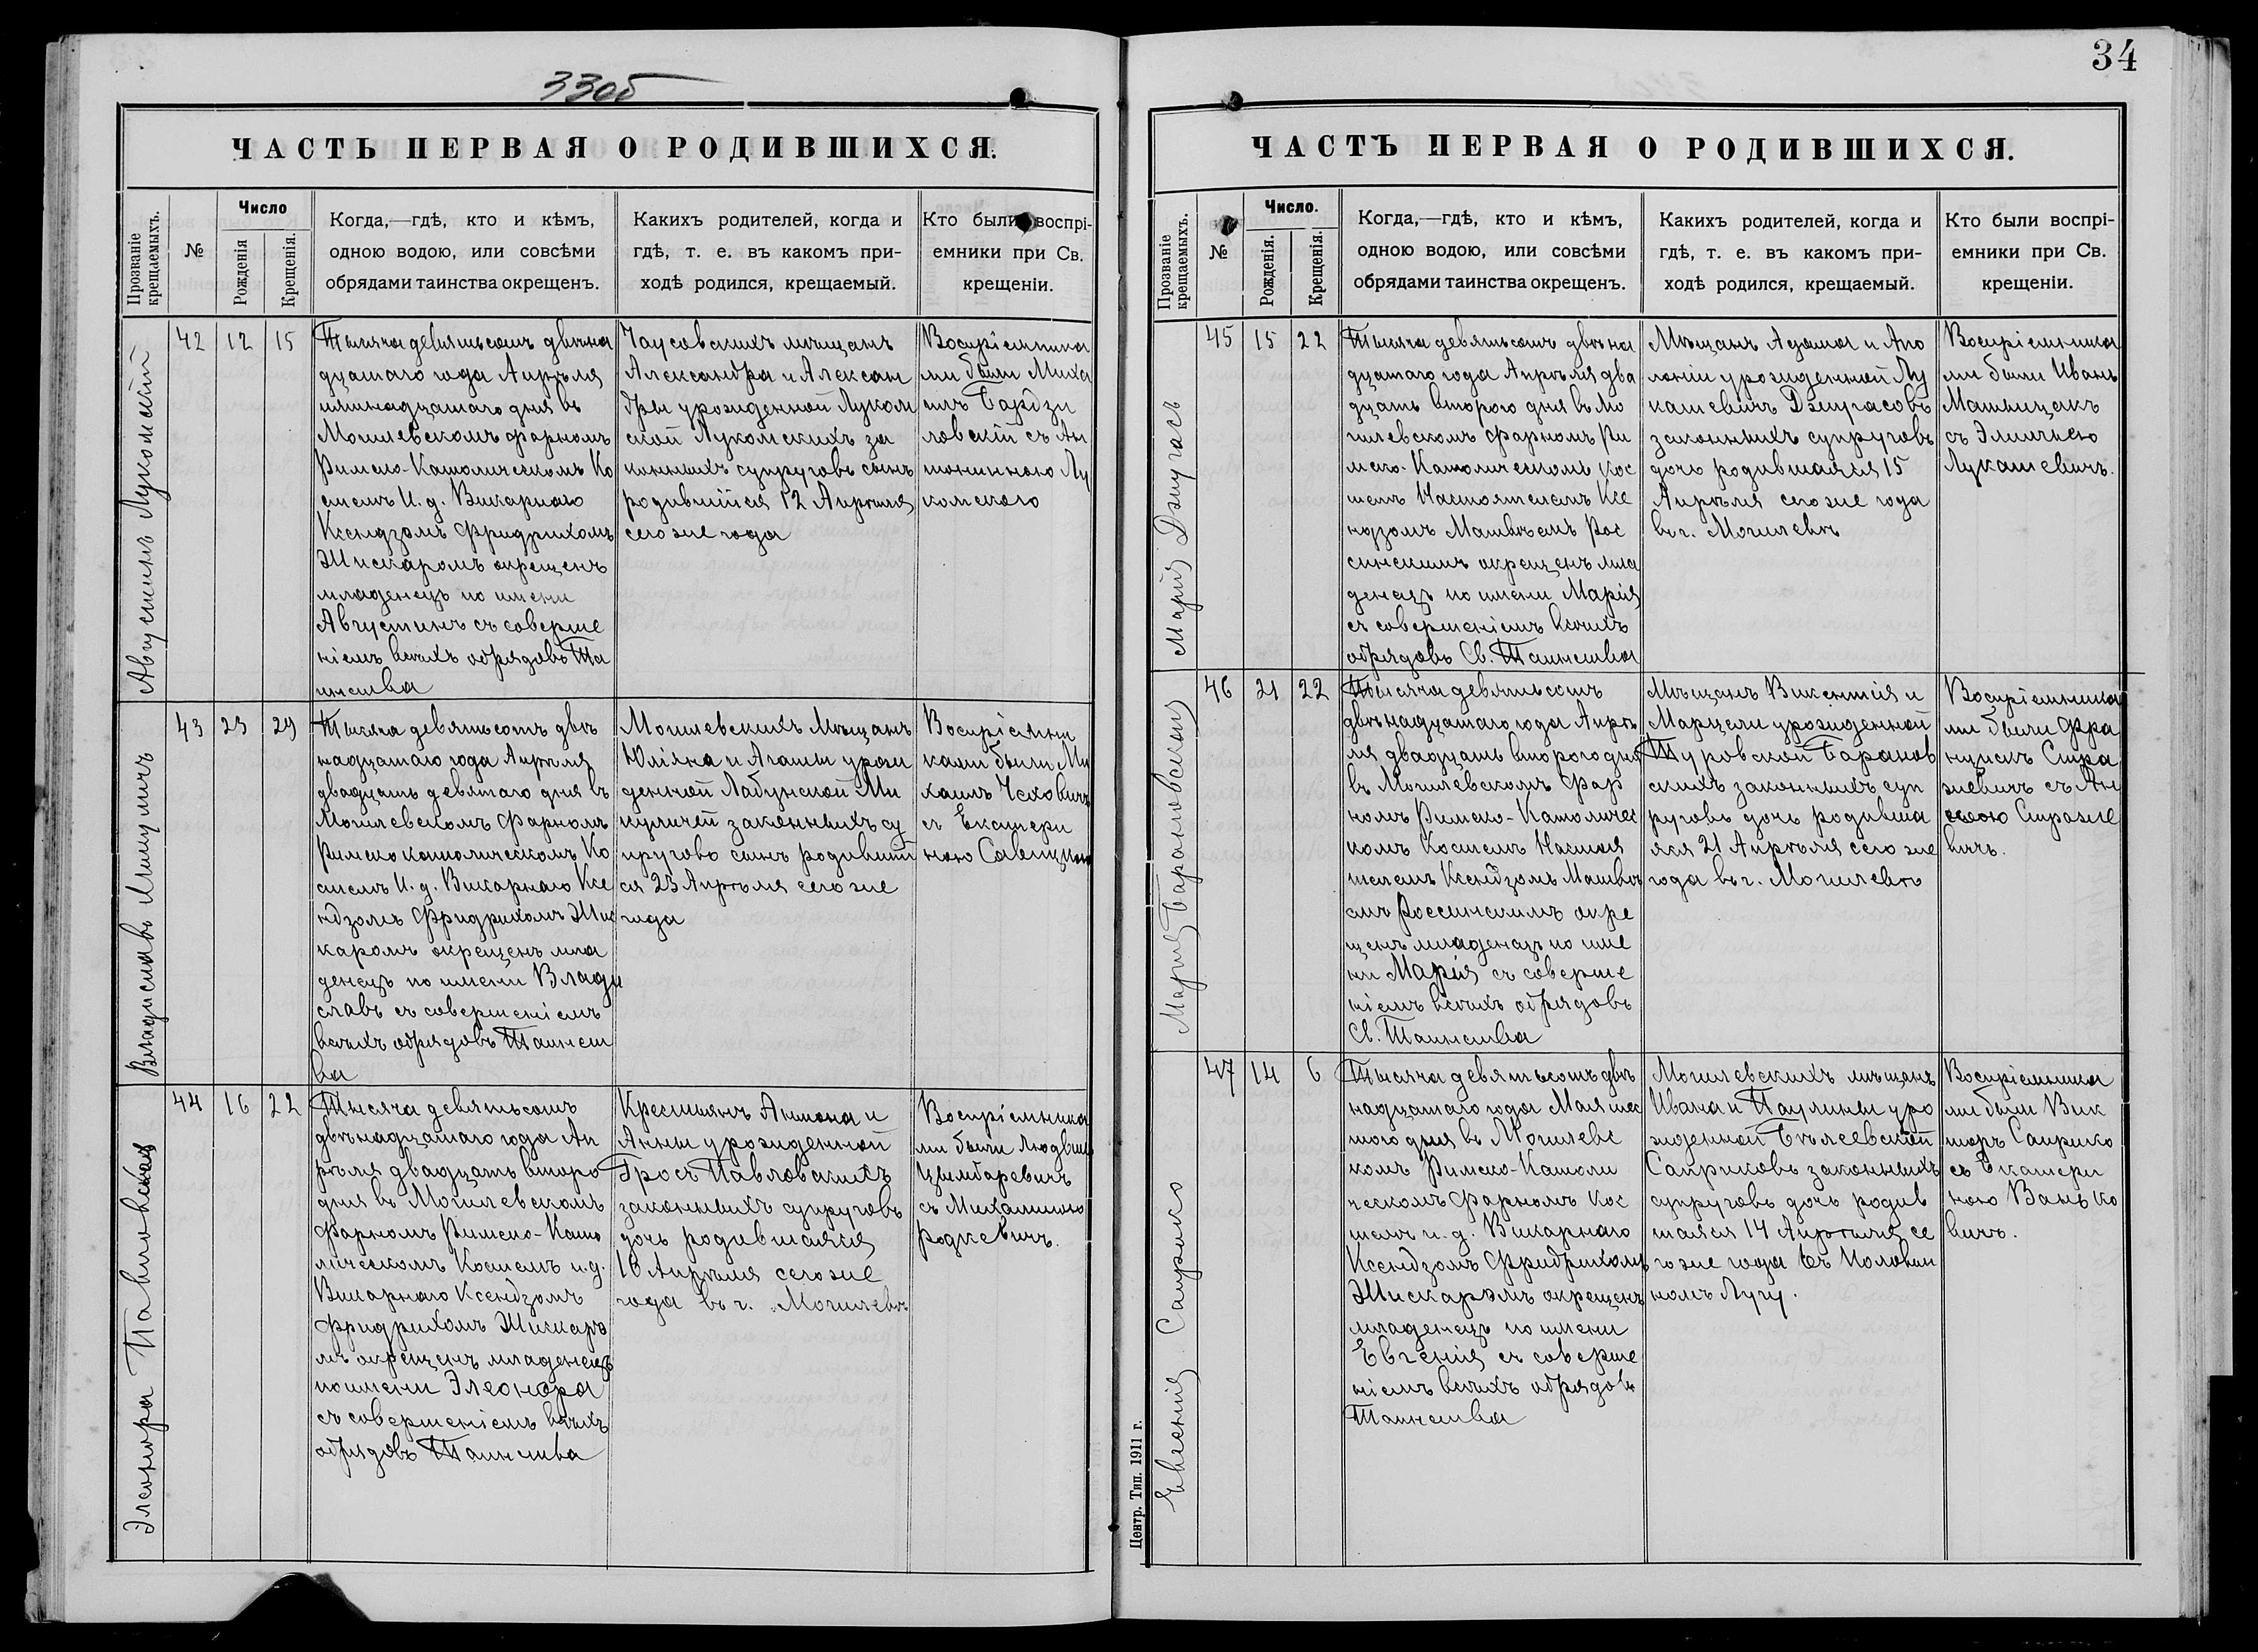 33об
ЧАСТЬ ПЕРВАЯ О РОДИВШИХСЯ.
Прозваніе крещаемыхъ.
№
Число
Рожденія
Крещенія.
Когда,—гдѣ, кто и кѣмъ,
одною водою, или совсѣми
обрядами таинства окрещенъ.
Какихъ родителей, когда и
гдѣ, т. е. въ какомъ при-
ходѣ родился, крещаемый.
Кто были воспрі-
емники при Св.
крещеніи.
Августинъ Лукомскій
42 12 15
Тысяча девятьсотъ двѣна
дцатаго года Апрѣля
пятнадцатаго дня въ
Могилевскомъ фарномъ
Римско-Католическомъ Ко
стелѣ И. д. Викарнаго
Ксендзомъ Фридрихомъ
Жискаромъ окрещенъ
младенецъ по имени
Августинъ съ соверше
ніемъ всѣхъ обрядовъ Та
инства
Чаусовскихъ мѣщанъ
Александра и Алексан
дры урожденной Луком
ской Лукомскихъ за
конныхъ супруговъ сынъ
родившійся 12 Апрѣля
сего же года
Воспріемника
ми были Миха
илъ Бардзи
ловскій съ Ан
тониною Лу
комскою
Владиславъ Микуличъ
43 23 29
Тысяча девятьсотъ двѣ
надцатаго года Апрѣля
двадцать девятаго дня въ
Могилевскомъ Фарномъ
Римско католическомъ Ко
стелѣ И. д. Викарнаго Ксе
ндзомъ Фридрихомъ Жис
каромъ окрещенъ мла
денецъ по имени Влади
славъ съ совершеніемъ
всѣхъ обрядовъ Таинст
ва
Могилевскихъ Мѣщанъ
Юліяна и Агаты урож
денной Лабунской Ми
куличей законныхъ су
пруговъ сынъ родивший
ся 23 Апрѣля сего же
года
Воспріемни
ками были Ми
хаилъ Чеховичъ
съ Екатери
ною Савицкою
Элеонора Павловская
44 16 22
Тысяча девятьсотъ
двѣнадцатаго года Ап
рѣля двадцать второ
дня въ Могилевскомъ
Фарномъ Римско-Като
лическомъ Костелѣ и.д.
Викарнаго Ксендзомъ
Фридрихомъ Жискаро
мъ окрещенъ младенецъ
по имени Элеонора
съ совершеніемъ всѣхъ
обрядовъ Таинства
Крестьянъ Антона и
Анны урожденной
Гросъ Павловскихъ
законныхъ супруговъ
дочь родившаяся
16 Апрѣля сего же
года въ г. Могилевѣ
Воспріемника
ми были Людвигъ
Цымбаревичъ
съ Михалиною
Родкевичъ.
34
ЧАСТЬ ПЕРВАЯ О РОДИВШИХСЯ.
Прозваніе крещаемыхъ.
№
Число.
Рожденія.
Крещенія.
Когда,—гдѣ, кто и кѣмъ,
одною водою, или совсѣми
обрядами таинства окрещенъ.
Какихъ родителей, когда и
гдѣ, т. е. въ какомъ при-
ходѣ родился, крещаемый.
Кто были воспрі-
емники при Св.
крещеніи.
Марія Дзмугасъ
45 15 22
Тысяча девятьсотъ двѣна
дцатаго года Апрѣля два
дцать второго дня въ Мо
гилевскомъ Фарномъ Ри
мско-Католическомъ Кос
телѣ Настоятелемъ Ксе
ндзомъ Матвѣемъ Рос
синскимъ окрещенъ мла
денецъ по имени Марія
съ совершеніемъ всѣхъ
обрядовъ Св. Таинства
Мѣщанъ Адама и Апо
лоніи урожденной Лу
кашевичъ Дзмугасовъ
законныхъ супруговъ
дочь родившаяся 15
Апрѣля сего же года
въ г. Могилевѣ
Воспріемника
ми были Иванъ
съ Эмиліею
Лукашевичъ.
Марія Барановская
46 21 22
Тысяча девятьсотъ
двѣнадцатаго года Апрѣ
ля двадцать второго дня
въ Могилевскомъ Фар
номъ Римско-Католичес
комъ Костелѣ Настоя
телемъ Ксендзомъ Матвѣ
емъ Россинскимъ окре
щенъ младенецъ по име
ни Марія съ соверше
ніемъ всѣхъ обрядовъ
Св. Таинства
Мѣщанъ Викентія и
Марцели урожденной
Туровской Баранов
скихъ законныхъ суп
руговъ дочь родивша
яся 21 Апрѣля сего же
года въ г. Могилевѣ
Воспріемника
ми были Фра
нцискъ Стра
жевичъ съ Ан
елею Страже
вичъ.
Евгенія Саприко
47 14 6
Тысяча девятьсотъ двѣ
надцатаго года Мая шес
того дня въ Могилевс
комъ Римско-Католи
ческомъ Фарномъ Кос
телѣ и. д. Викарнаго
Ксендзомъ Фридрихомъ
Жискаромъ окрещенъ
младенецъ по имени
Евгенія съ соверше
ніемъ всѣхъ обрядовъ
Таинства
Могилевскихъ мѣщанъ
Ивана и Паулины уро
жденной Бѣлеевской
Саприковъ законныхъ
супруговъ дочь родив
шаяся 14 Апрѣля се
го же года въ Половин
номъ Лугу.
Воспріемника
ми были Вик
торъ Саприко
съ Екатери
ною Ванько
вичъ.
Центр. Тип. 1911 г.